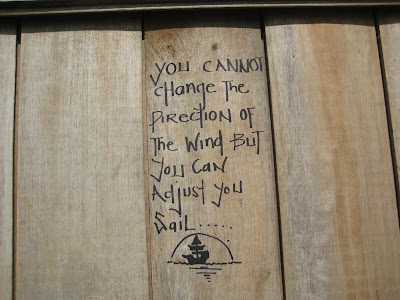 YOU CANNOT
change The
Direction of
The Wind But
You Can
Adjust you
Sail.....